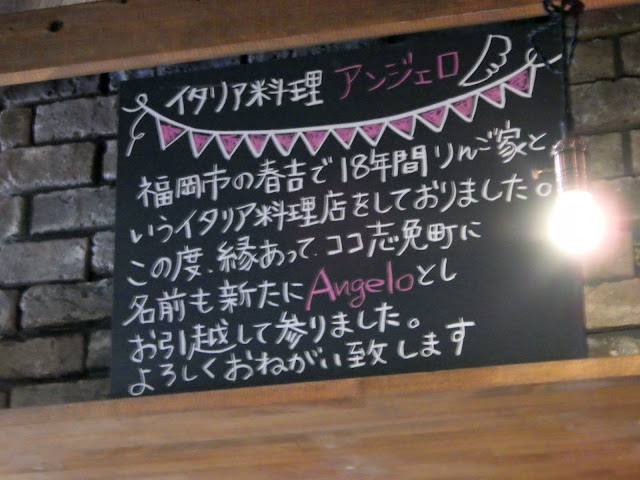 イタリア料理 アンジェロ
福岡市の春吉で18年間りんご家と
いうイタリア料理店をしておりました。
この度、縁あって、ココ志免町に
名前も新たにAngeloとし
お引越して参りました。
よろしくおねがい致します